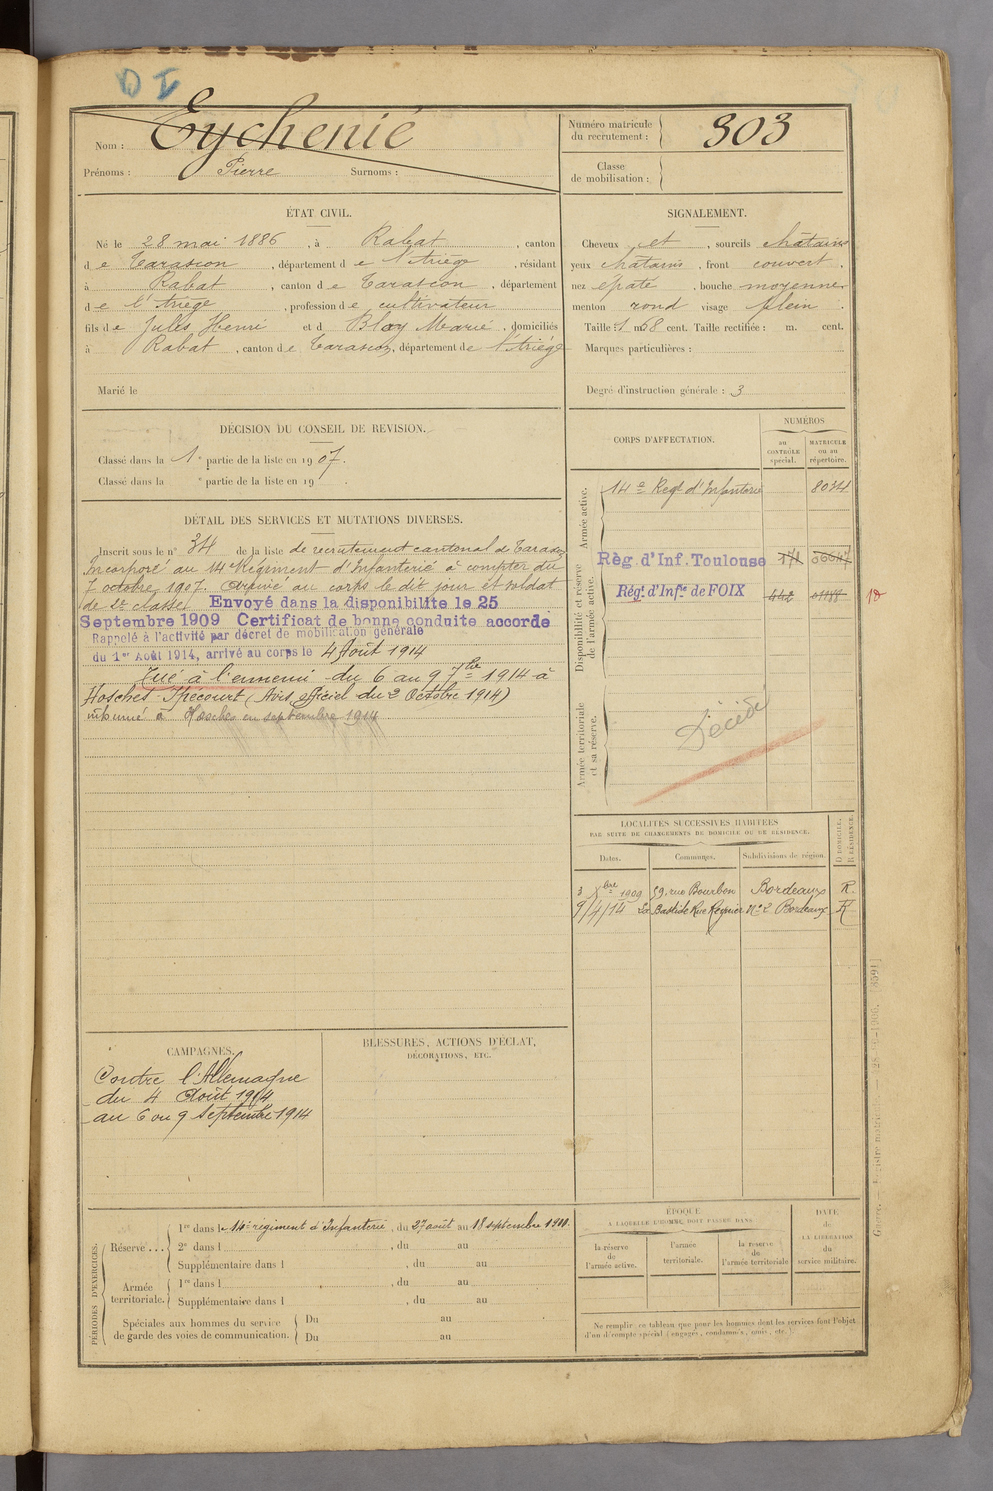 DI
Nom : Eychenié
Prénoms : Pierre Surnoms :
Numéro matricule du recrutement : 303
Classe de mobilisation :
ÉTAT CIVIL.
Né le 28 mai 1886 , à Rabat , canton
d e Tarascon , département d e l'Ariège , résidant
à Rabat , canton d e Tarascon , département
d e l'Ariège , profession d e cultivateur
fils d e Jules Henri et d Blazy Marie , domiciliés
à Rabat , canton d e Tarascon, département d e l'Ariège
Marié le
SIGNALEMENT.
Cheveux et , sourcils châtains
yeux châtains , front couvert ,
nez épaté , bouche moyenne
menton rond visage plein .
Taille : 1 m 68 cent. Taille rectifiée : m. cent.
Marques particulières :
Degré d'instruction générale : 3
DÉCISION DU CONSEIL DE REVISION.
Classé dans la 1e partie de la liste en 1907.
Classé dans la e partie de la liste en 19 .
DÉTAIL DES SERVICES ET MUTATIONS DIVERSES.
Inscrit sous le n° 34 de la liste de recrutement cantonal de Tarascon
Incorporé au 14e Régiment d'Infanterie à compter du
7 octobre 1907. Arrivé au corps le dit jour et soldat
de 2e classe. Envoyé dans la disponibilité le 25
Septembre 1909 Certificat de bonne conduite accordé
Rappelé à l'activité par décret de mobilisation générale
du 1er Août 1914, arrivé au corps le 4 Août 1914
Tué à l'ennemi du 6 au 9 7bre 1914 à
Hosches-Trécourt (Avis officiel du 2 Octobre 1914)
inhumé à Hosches en septembre 1914
CORPS D'AFFECTATION.
NUMÉROS
au CONTRÔLE spécial.
MATRICULE ou au répertoire.
Armée active.
14e Regt d'Infanterie 8034
Disponibilité et réserve de l'armée active.
Règ. d'Inf. Toulouse
Régt. d'Infie de FOIX
18
Armée territoriale et sa réserve.
Décédé
LOCALITÉS SUCCESSIVES HABITÉES
PAR SUITE DE CHANGEMENTS DE DOMICILE OU DE RÉSIDENCE.
Dates. Communes. Subdivisions de région. D DOMICILE, R RÉSIDENCE.
3 Xbre 1909 59, rue Bourbon Bordeaux R.
9/4/14 La Bastide Rue Reynier No 2 Bordeaux R
CAMPAGNES.
Contre l'Allemagne
du 4 Août 1914
au 6 ou 9 Septembre 1914
BLESSURES, ACTIONS D'ÉCLAT,
DÉCORATIONS, ETC.
PÉRIODES D'EXERCICES.
Réserve ...
1re dans le 14e régiment d'Infanterie , du 27 août au 18 septembre 1911.
2e dans l , du au
Supplémentaire dans l , du au
Armée territoriale.
1re dans l , du au
Supplémentaire dans l , du au
Spéciales aux hommes du service de garde des voies de communication.
Du au
Du au
ÉPOQUE
A LAQUELLE L'HOMME DOIT PASSER DANS
la réserve de l'armée active.
l'armée territoriale.
la réserve de l'armée territoriale
DATE de LA LIBÉRATION du service militaire.
Ne remplir ce tableau que pour les hommes dont les services font l'objet
d'un décompte spécial (engagés, condamnés, omis, etc.)